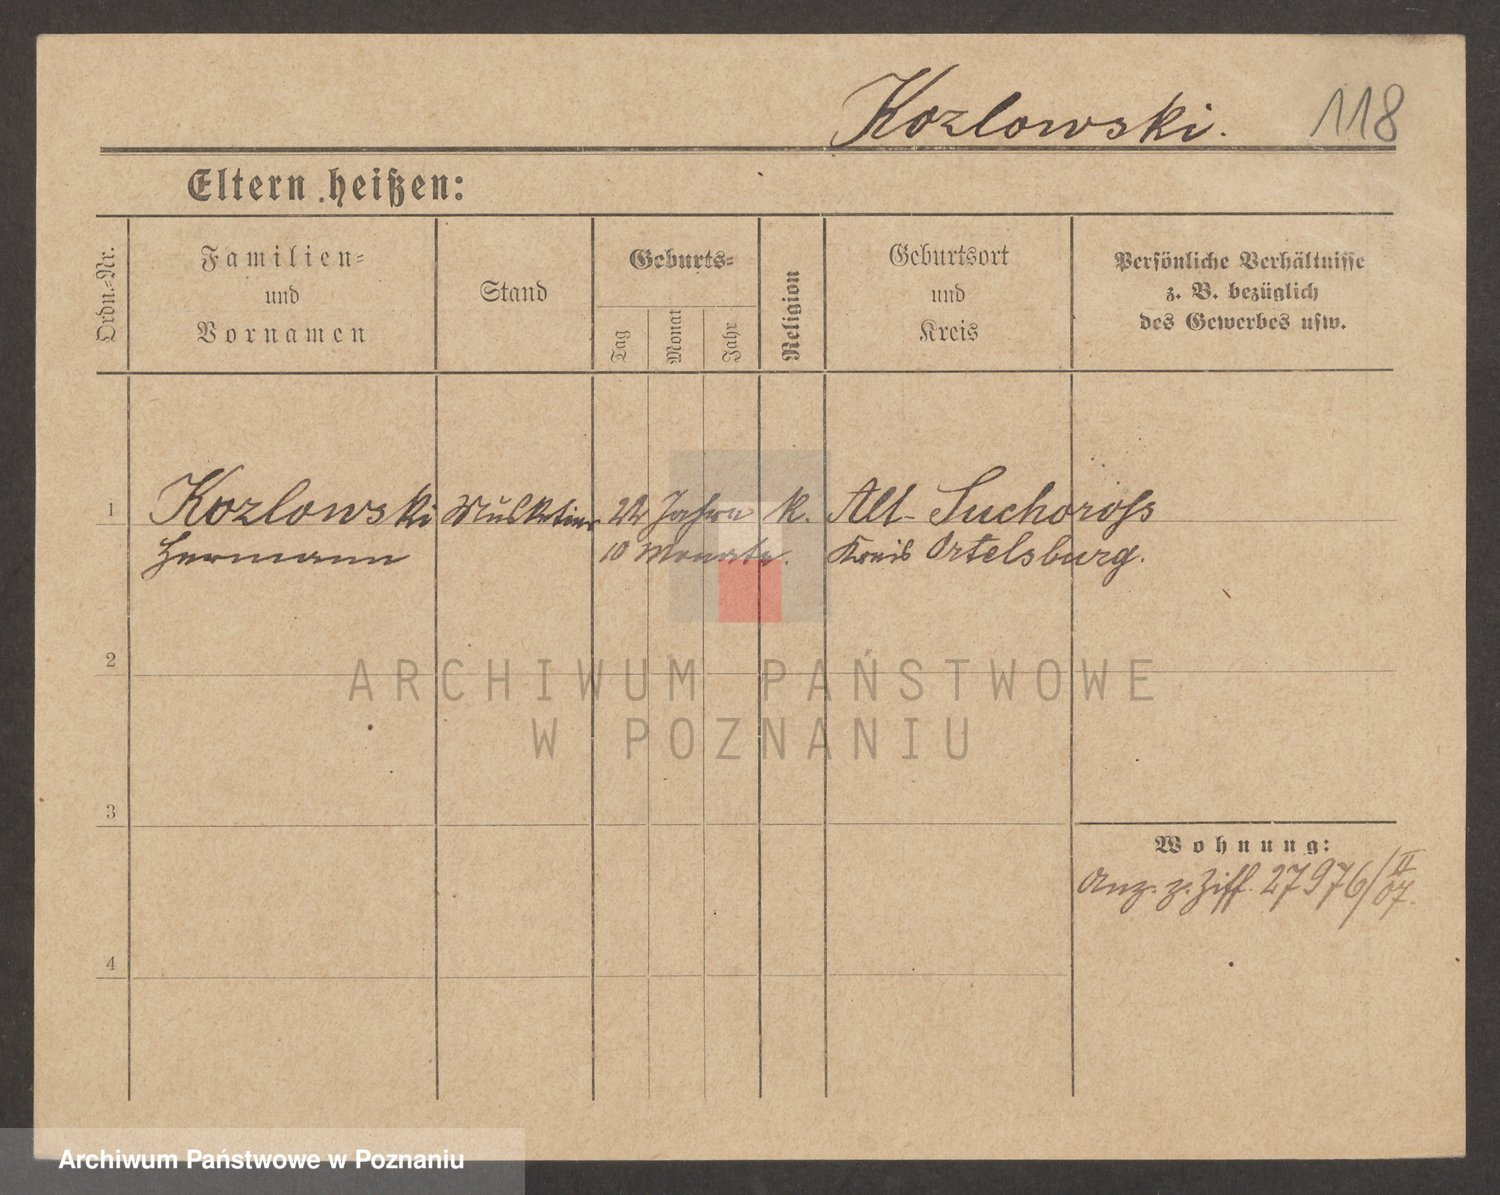 Kozlowski.
118
Eltern heißen:
Ordn.-Nr.
Familien-
und
Vornamen
Stand
Geburts-
Tag
Monat
Jahr
Religion
Geburtsort
und
Kreis
Persönliche Verhältnisse
z. B. bezüglich
des Gewerbes usw.
1
Kozlowski Musketier Jahre K. Alt-Suchoross
Hermann 10 Monate. Kreis Ortelsburg.
2
ARCHIWUM PAŃSTWOWE
W POZNANIU
3
Wohnung:
Anz. z. Ziff. 27976/II 07.
4
Archiwum Państwowe w Poznaniu